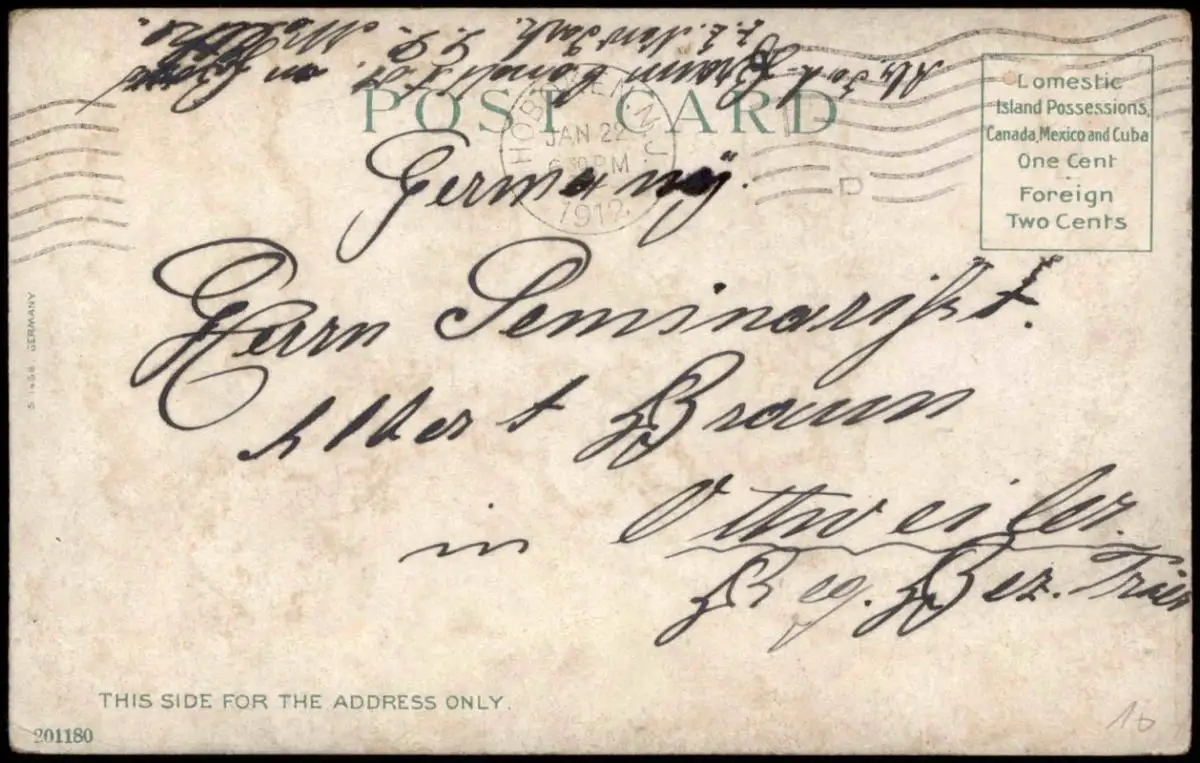 POST CARD
HOBOKEN, N.J.
JAN 22
6 30 PM
1912
D
Domestic
Island Possessions,
Canada, Mexico and Cuba
One Cent
Foreign
Two Cents
Germany.
Herrn Seminarist.
Albert Braun
in Ottweiler.
Reg. Bez. Trier
S 1456 GERMANY
THIS SIDE FOR THE ADDRESS ONLY.
201180
16